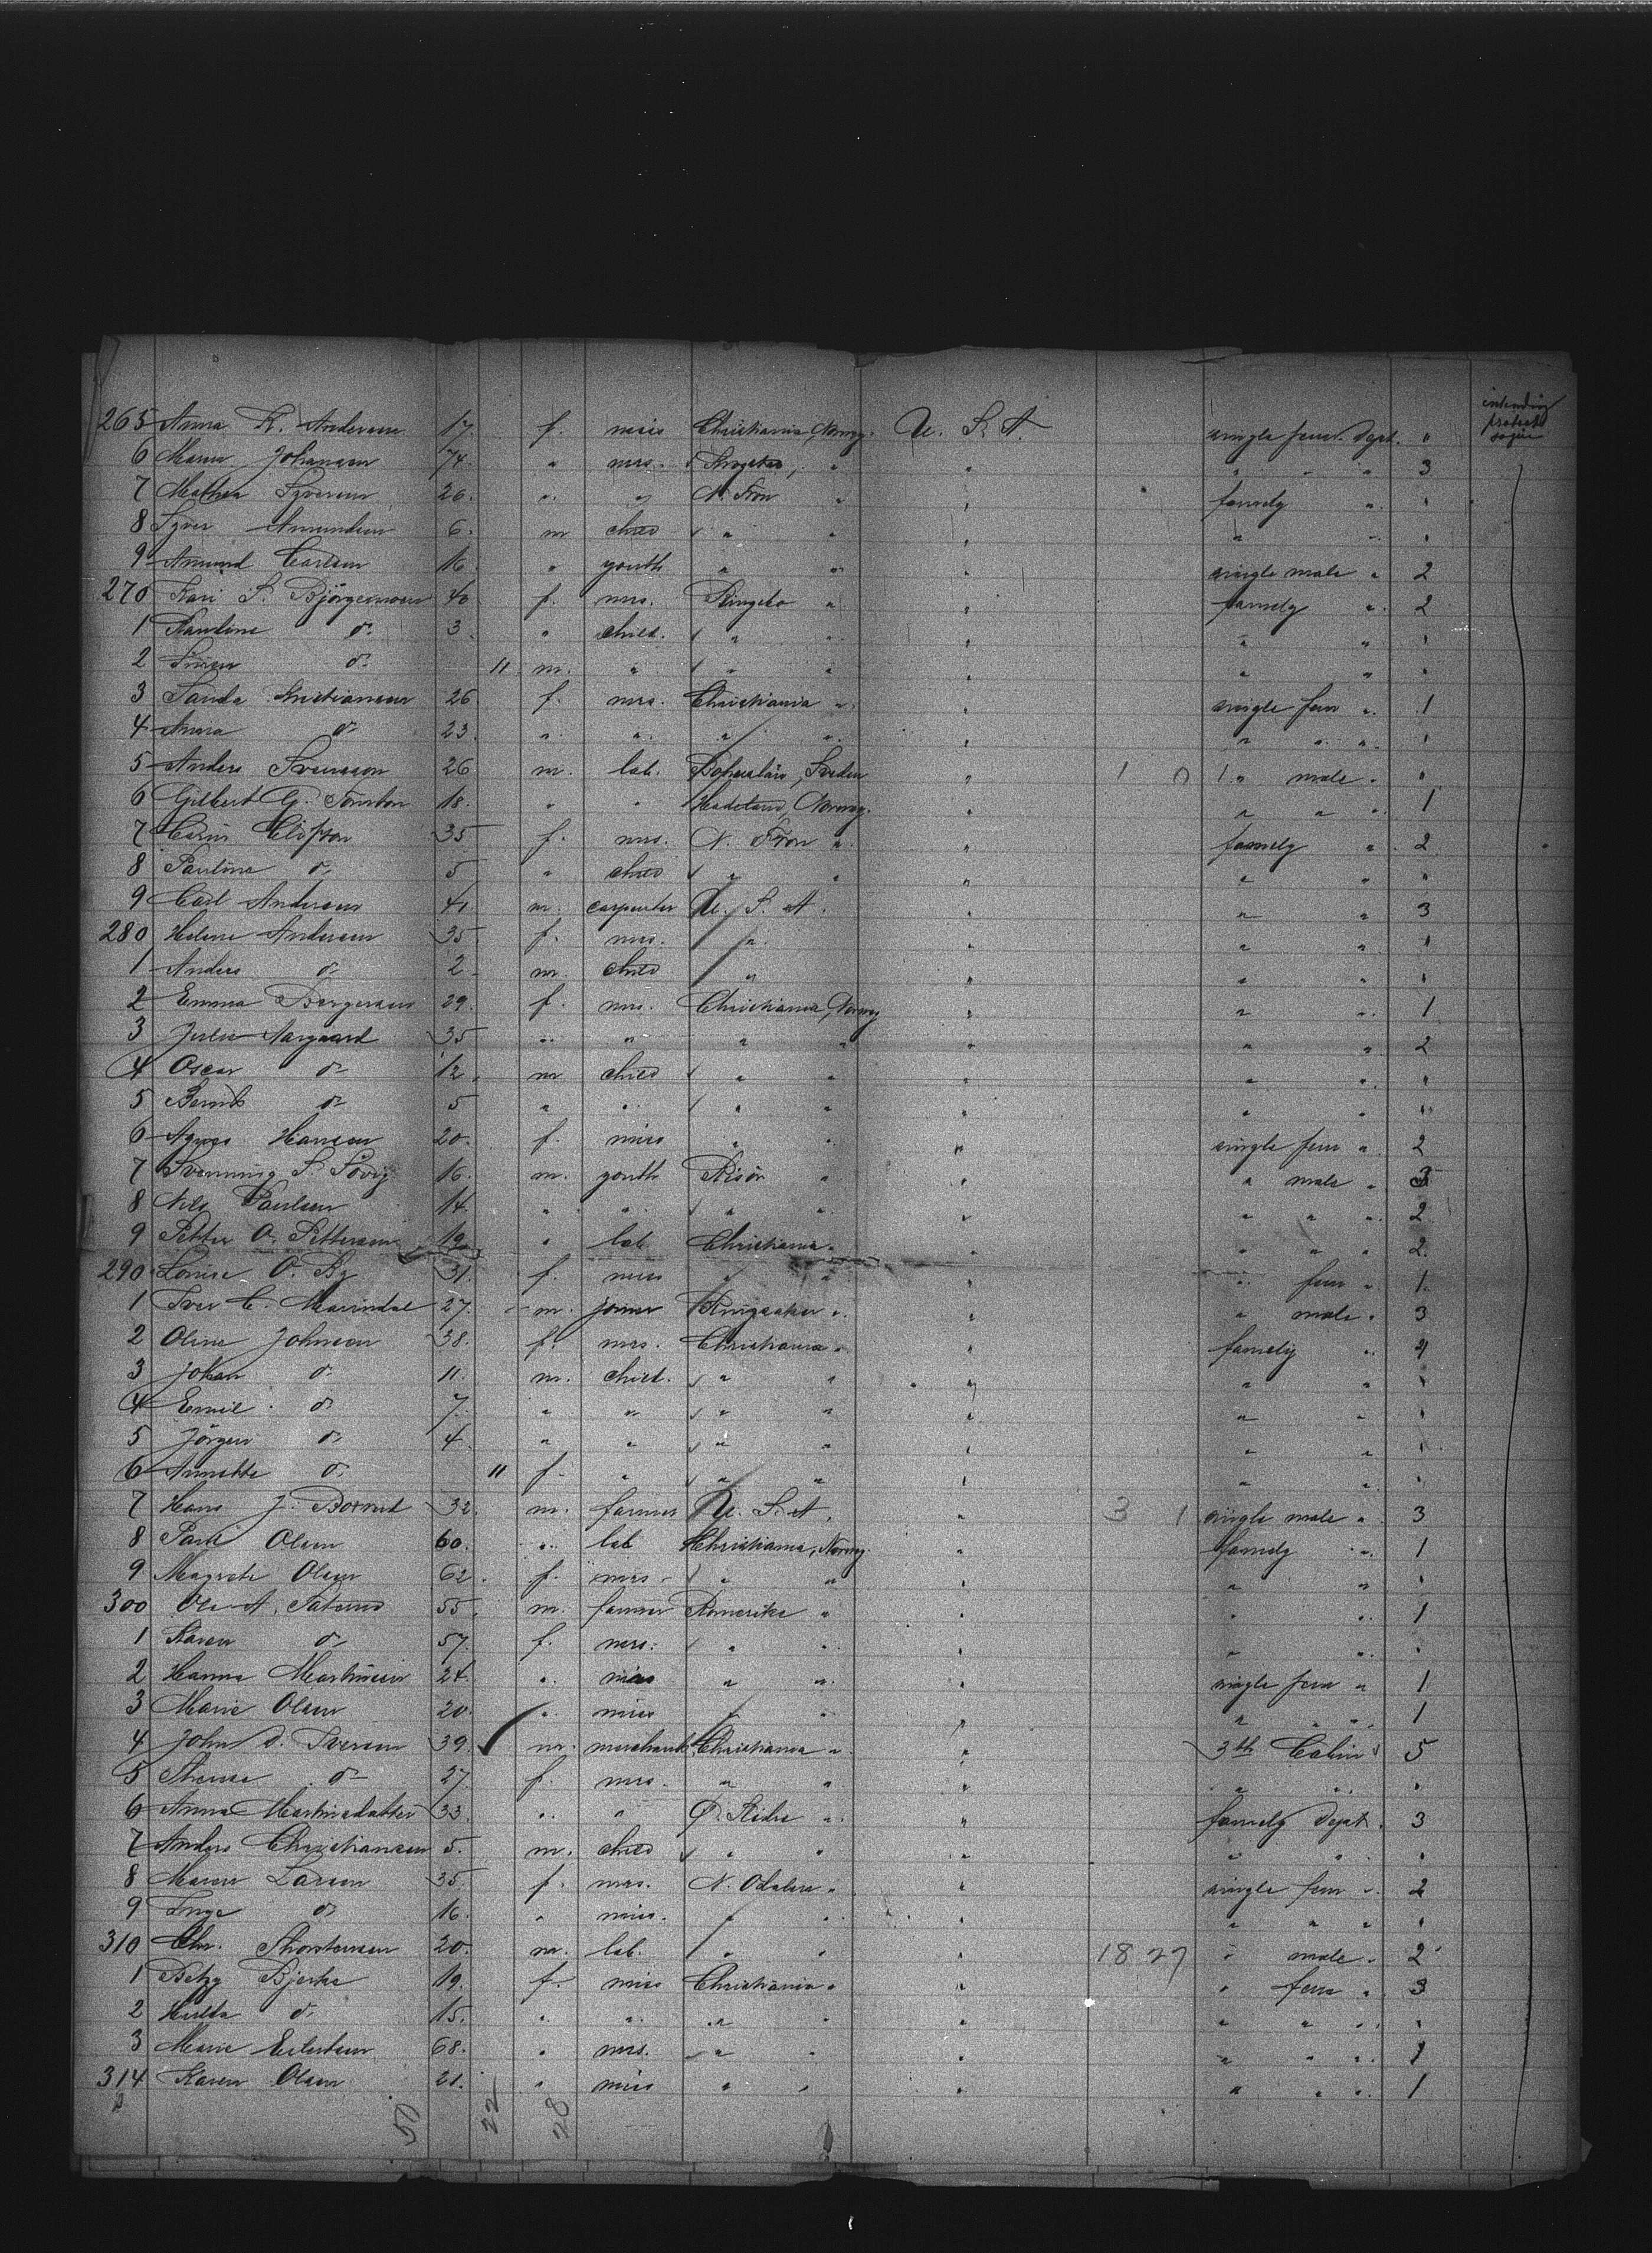 intending protracted sojourn
265 Anna K. Andersen 17. f. miss Christiania, Norway. U. S. A. single fem. Dept. "
6 Maren Johansen 74. " mrs. " " " " " 3
7 Mathea Syversen 26. " " N. Fron " " family " "
8 Syver Amundsen 6. m child " " " " " "
9 Amund Carlsen 16. " youth " " " single male " 2
270 Kari S. 40 f. mrs. Ringebo " " family " 2
1 Pauline do 3. " child. " " " " " "
2 Simen do 11 m. " " " " " " "
3 Kristiansen 26. f. mrs. Christiania " " single fem " 1
4 Anna do 23. " " " " " " " " "
5 Anders Svensson 26 m. lab. Sweden " 1 0 1 " male " "
6 Gilbert G. 18. " " Hadeland, Norway. " " " " 1
7 35 f. mrs. N. Fron " " family " 2
8 Pauline do 5 " child " " " " " "
9 Carl Andersen 41. m. carpenter U. S. A. " " " 3
280 Helene Andersen 35 f. mrs. " " " " "
1 Anders do 2 m. child " " " " "
2 Emma Bergersen 29. f. mrs. Christiania, Norway " " " 1
3 Julie Aargaard 35 " " " " " " " 2
4 Oscar do 12. m child " " " " " "
5 Bernt do 5 " " " " " " " "
6 Agnes Hansen 20. f. miss " " " single fem " 2
7 Svenning S. 16. m. youth Risör " " " male " 3
8 Nils Paulsen 14. " " " " " " " " 2
9 Petter O. Pettersen 19 " lab. Christiania " " " " " 2.
290 Louise O. By 31. f. miss " " " " fem " 1.
1 Iver C. 27. m. joiner Ringsaker " " " male " 3
2 Oline Johnsen 38. f. mrs. Christiania " " family " 4
3 Johan do 11. m. child. " " " " " "
4 Emil do 7. " " " " " " " "
5 Jörgen do 4. " " " " " " " "
6 Annette do 11 f. " " " " " " "
7 Hans J. 32. m. farmer U. S. A. " 3 1 single male " 3
8 Paul Olsen 60. " lab Christiania, Norway. " family " 1
9 Magrete Olsen 62. f. mrs. " " " " " "
300 Ole A. 55. m. farmer Romerike " " " " 1
1 Karen do 57. f. mrs. " " " " " "
2 Hanna Martinsen 24. " miss " " " single fem " 1
3 Marie Olsen 20. " miss " " " " " " 1
4 John O. Iversen 39. m. merchant Christiania " " 3th Cabin 5
5 do 27. f. mrs. " " " " " "
6 Anna Martinsdatter 33. " " " " family Dept. 3
7 Anders Christiansen 5. m. child " " " " " "
8 Maren Larsen 35. f. mrs. N. Odalen " " single fem " 2
9 Inga do 16. " miss. " " " " " " "
310 Chr. Thorstensen 20. m. lab. " " " 18 27 " male " 2
1 Betzy Bjerke 19. f. miss Christiania " " " fem " 3
2 Hulda do 15. " " " " " " " " "
3 Marie 68. " mrs. " " " " " " 1
314 Karen Olsen 21. " miss " " " " " " 1
50 22 28